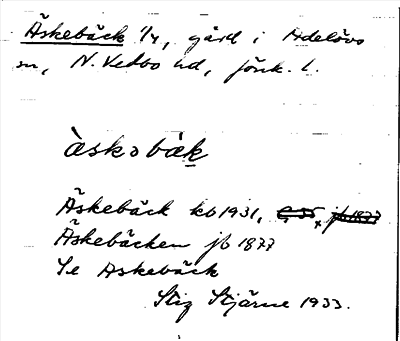 Äskebäck 1/4, gård i Adelövs
sn, N. Vedbo hd, Jönk. l.
àskəbä̀k
Äskebäck kb 1931, jb 1877
Äskebäcken jb 1877
Se Askebäck
Stig Stjärne 1933.